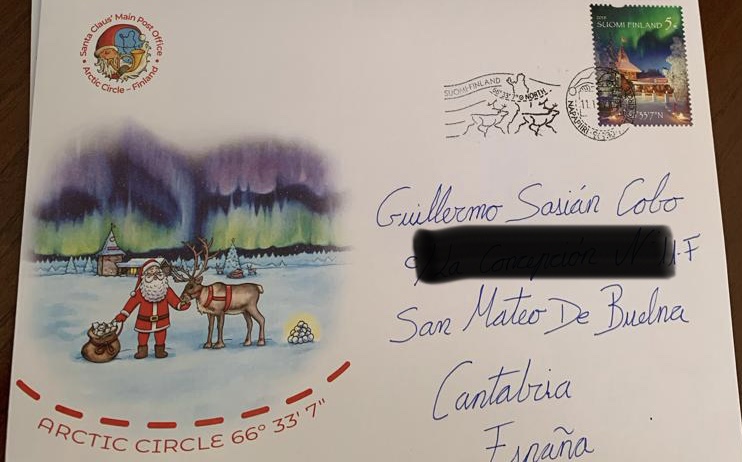 Santa Claus' Main Post Office
• Arctic Circle - Finland •
2018
SUOMI FINLAND 5
SUOMI-FINLAND
66° 33' 7" NORTH
NAPAPIIRI
33'7"N
Guillermo Sasián Cobo
San Mateo De Buelna
Cantabria
España
ARCTIC CIRCLE 66° 33' 7"